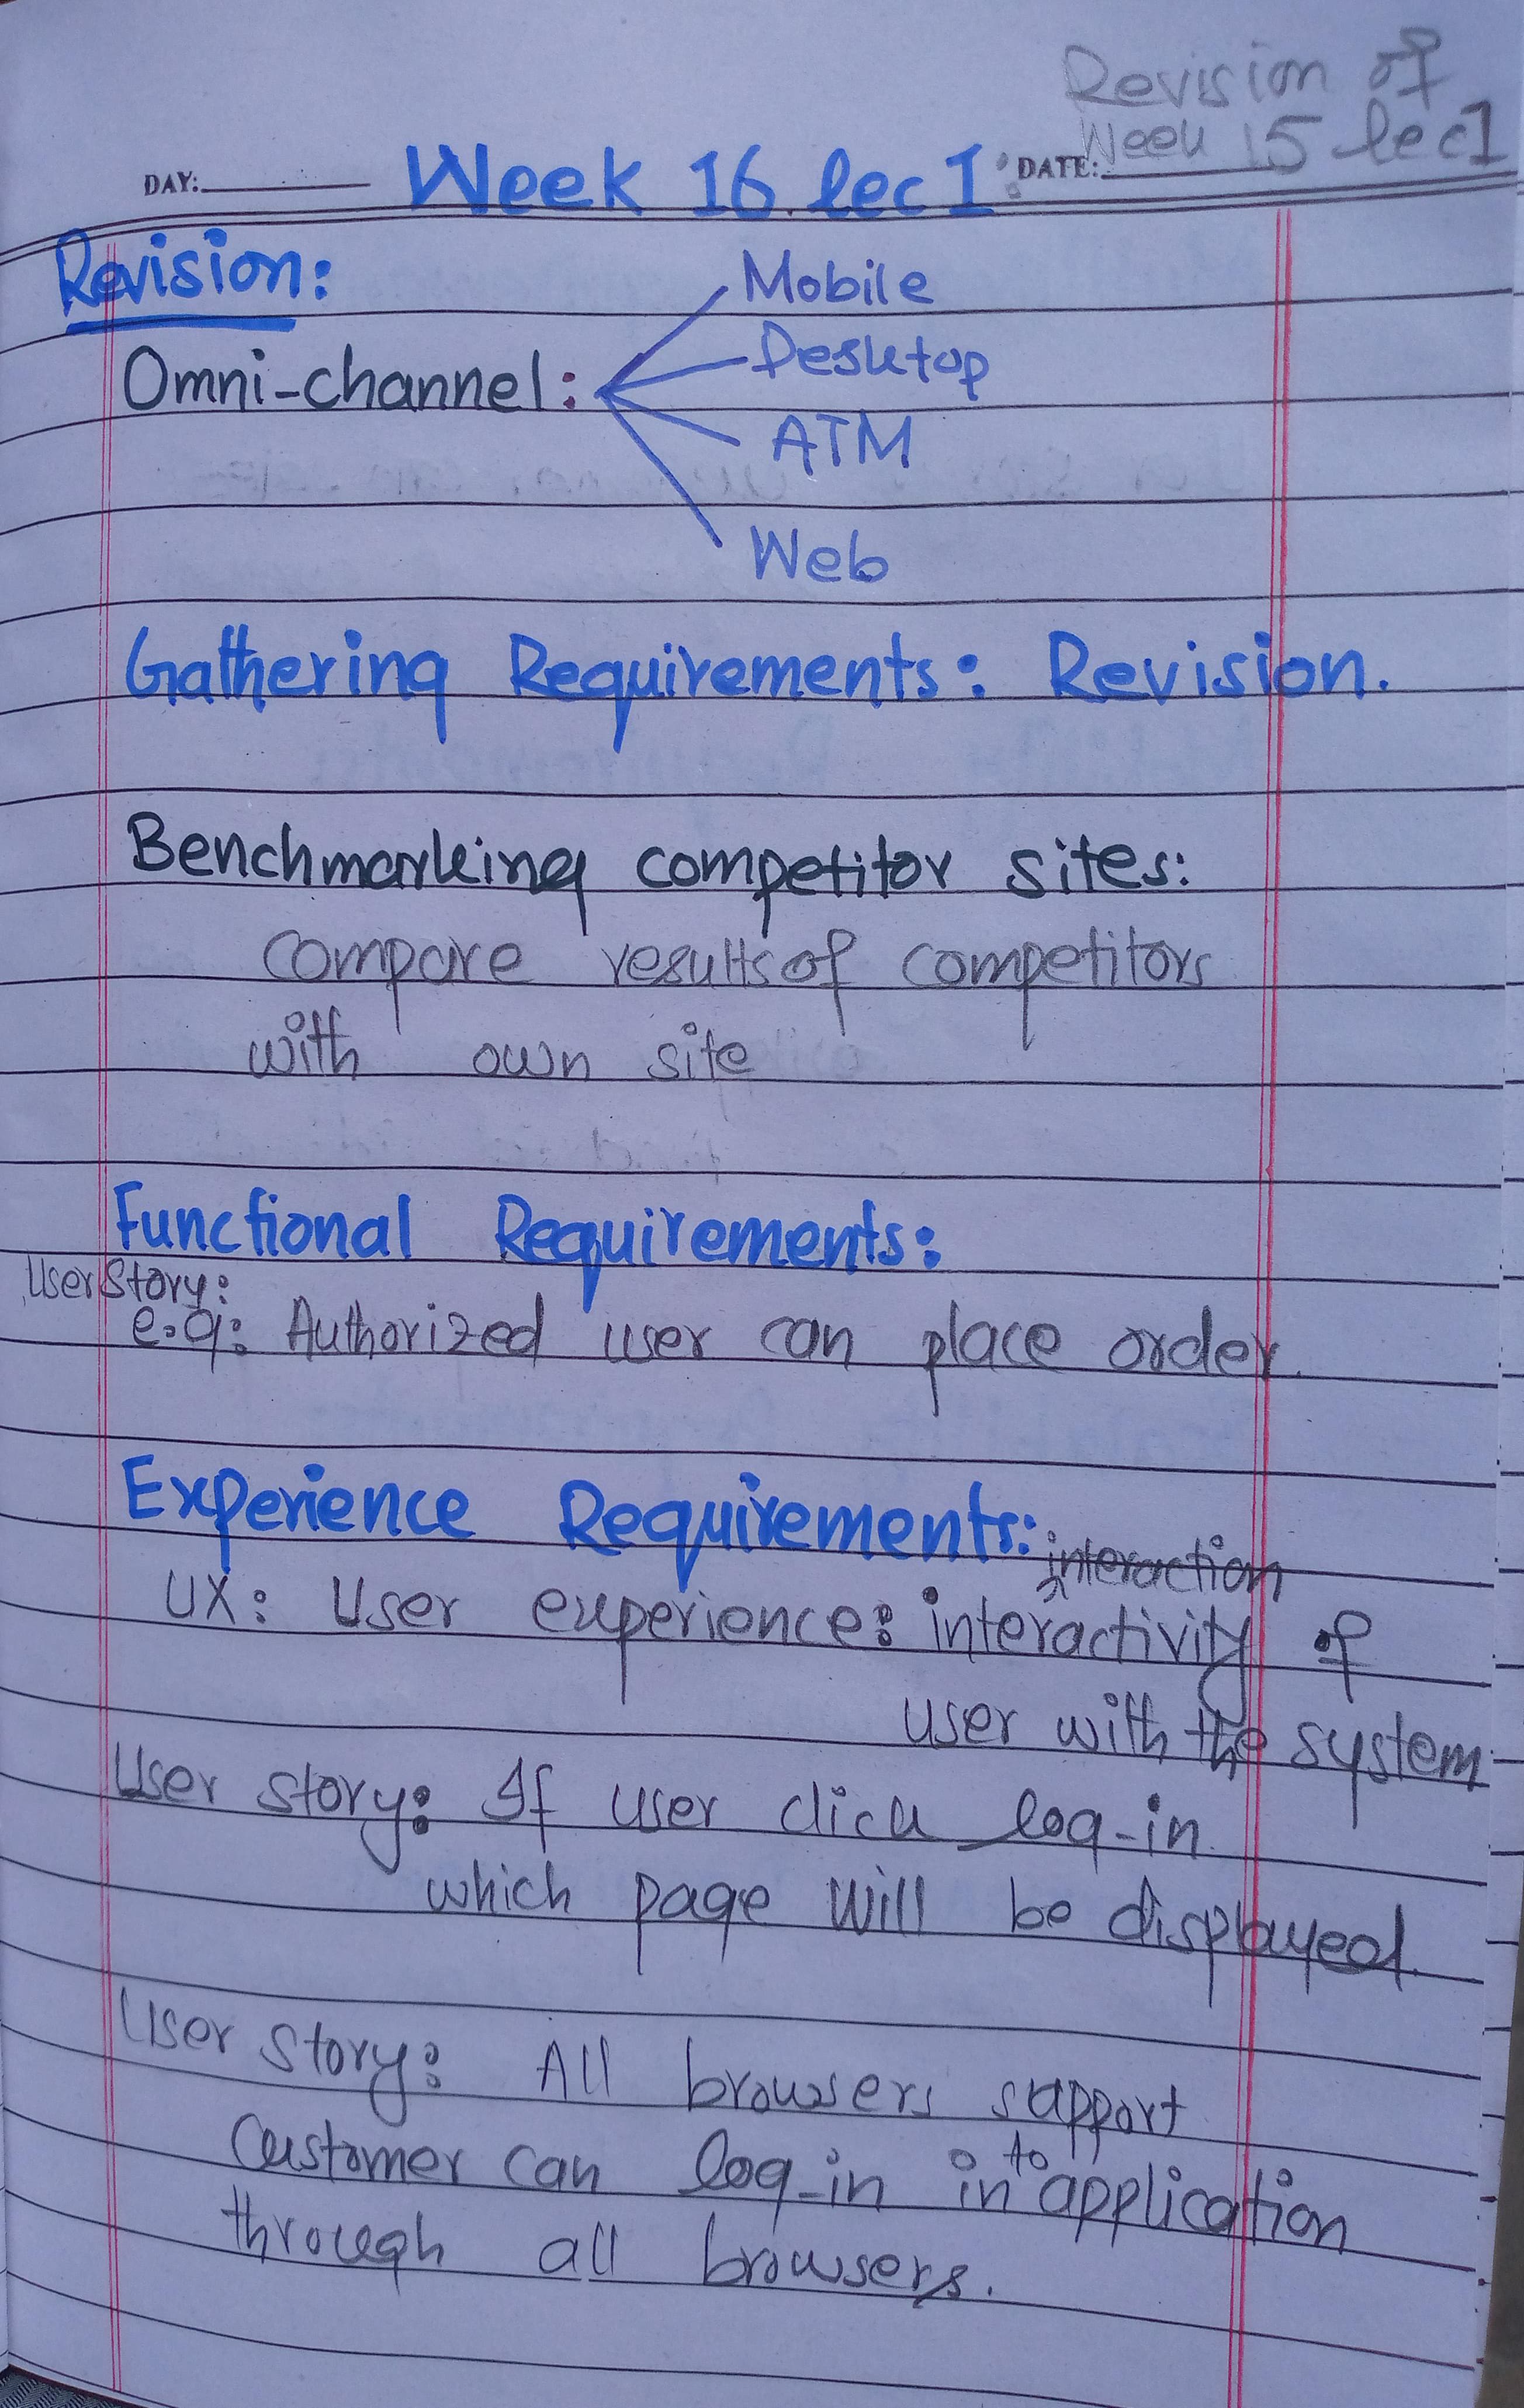 Revision of
Week 15 lec1
DAY: Week 16 lec 1: DATE:
Revision:
Mobile
Desktop
Omni-channel:
ATM
Web
Gathering Requirements: Revision.
Benchmarking competitor sites:
compare results of competitors
with own site
Functional Requirements:
User Story:
e.g: Authorized user can place order.
Experience Requirements:
interaction
UX: User experience: interactivity of
user with the system
User story: If user click log-in
which page will be displayed.
User Story: All browsers support
Customer can log-in in to application
through all browsers.